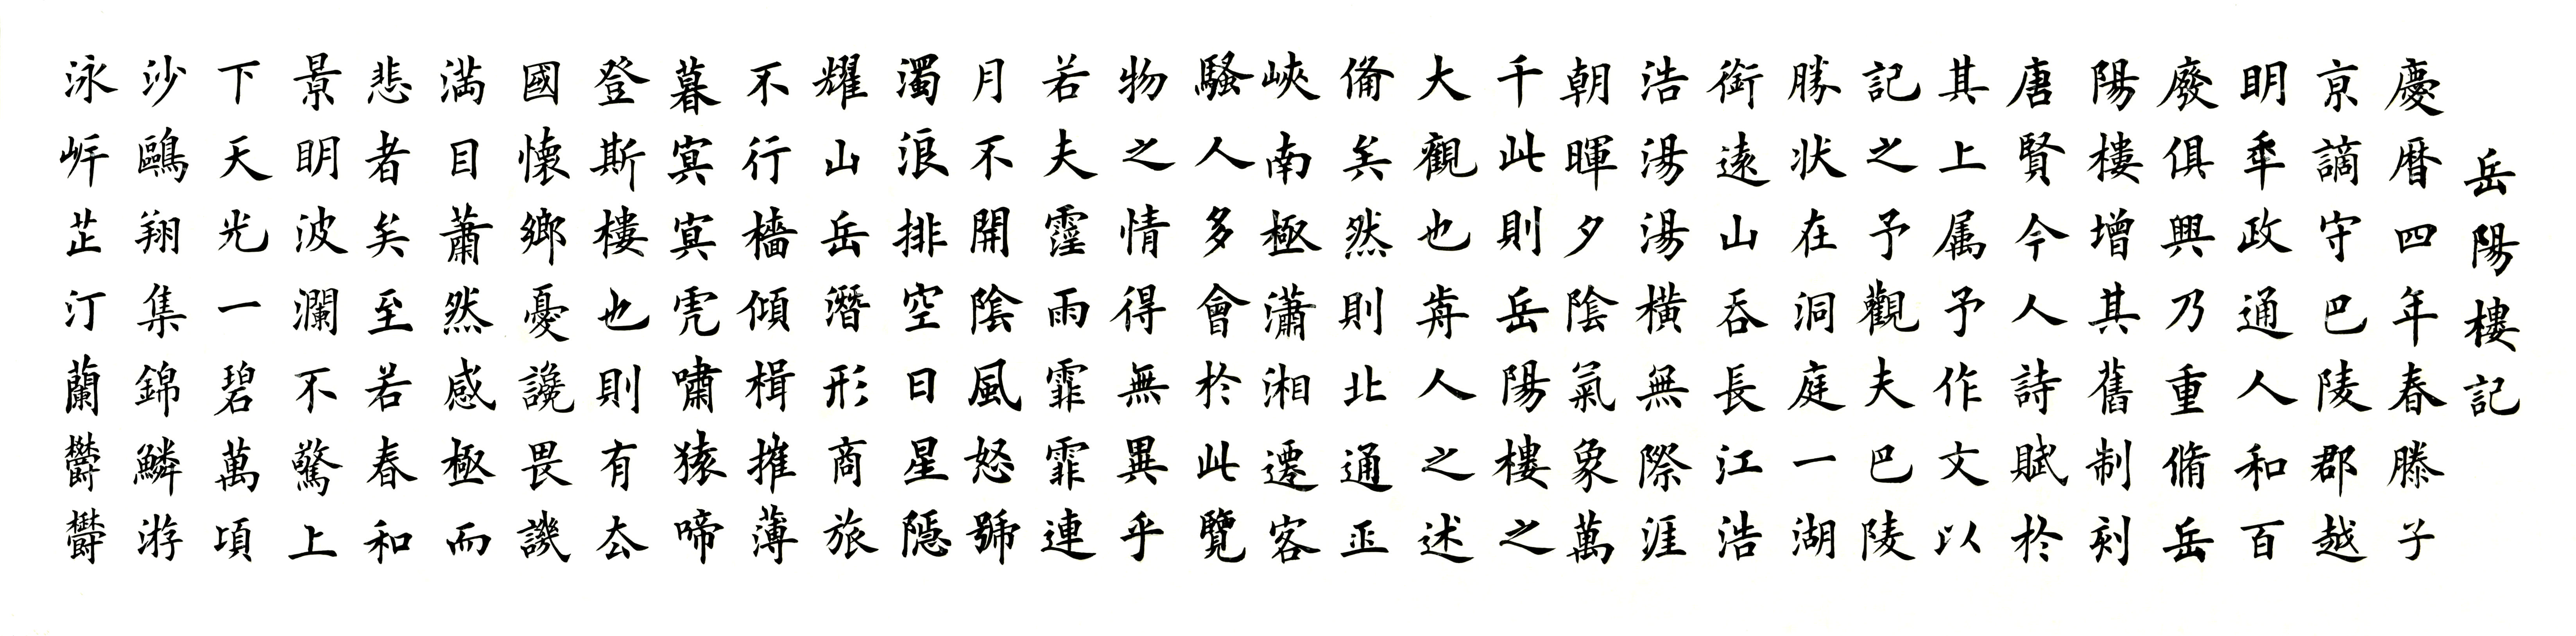 岳陽樓記
慶暦四年春滕子
亰謫守巴陵郡越
眀年政通人和百
廢俱興乃重脩岳
陽樓增其舊制刻
唐賢今人詩賦於
其上属予作文以
記之予觀夫巴陵
勝状在洞庭一湖
銜遠山吞長江浩
浩湯湯橫無際涯
朝暉夕陰氣象萬
千此則岳陽樓之
大觀也前人之述
備矣然則北通巫
峽南極瀟湘遷客
騷人多會於此覽
物之情得無異乎
若夫霪雨霏霏連
月不開陰風怒號
濁浪排空日星隱
耀山岳潛形商旅
不行檣傾楫摧薄
暮冥冥虎嘯猿啼
登斯樓也則有去
國懷鄉憂讒畏譏
滿目蕭然感極而
悲者矣至若春和
景眀波瀾不驚上
下天光一碧萬頃
沙鷗翔集錦鱗游
泳岸芷汀蘭鬱鬱